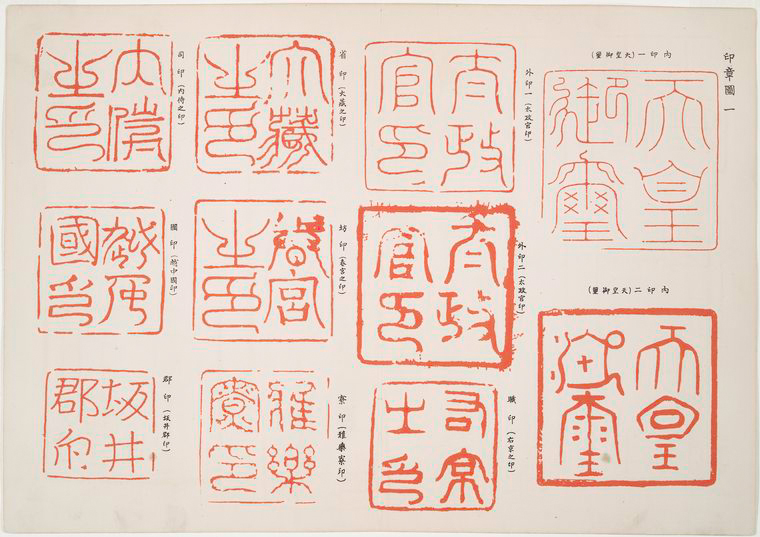 印章圖 一
內印一(天皇御璽)
天皇
御璽
內印二(天皇御璽)
天皇
御璽
外印一(太政官印)
太政
官印
外印二(太政官印)
太政
官印
職印(右京之印)
右京
之印
省印(大藏之印)
大藏
之印
坊印(春宮之印)
春宮
之印
寮印(雅樂寮印)
雅樂
寮印
司印(內侍之印)
內侍
之印
國印(越中國印)
越中
國印
郡印(坂井郡印)
坂井
郡印